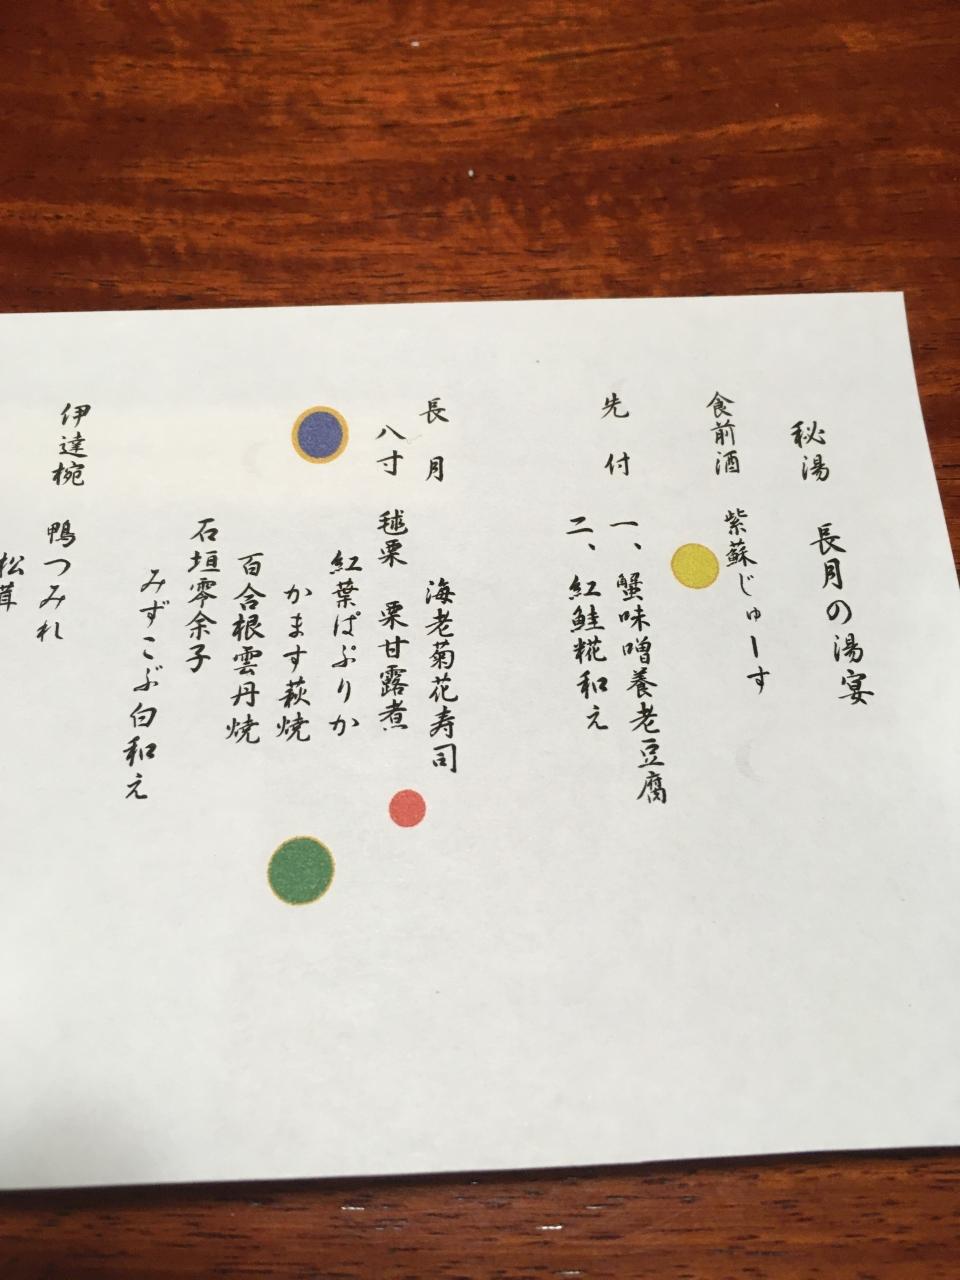 秘湯 長月の湯宴
食前酒 紫蘇じゅーす
先付 一、蟹味噌養老豆腐
二、紅鮭糀和え
長月 海老菊花寿司
八寸 毬栗 栗甘露煮
紅葉ぱぷりか
かます萩焼
百合根雲丹焼
石垣零余子
みずこぶ白和え
伊達椀 鴨つみれ
松茸